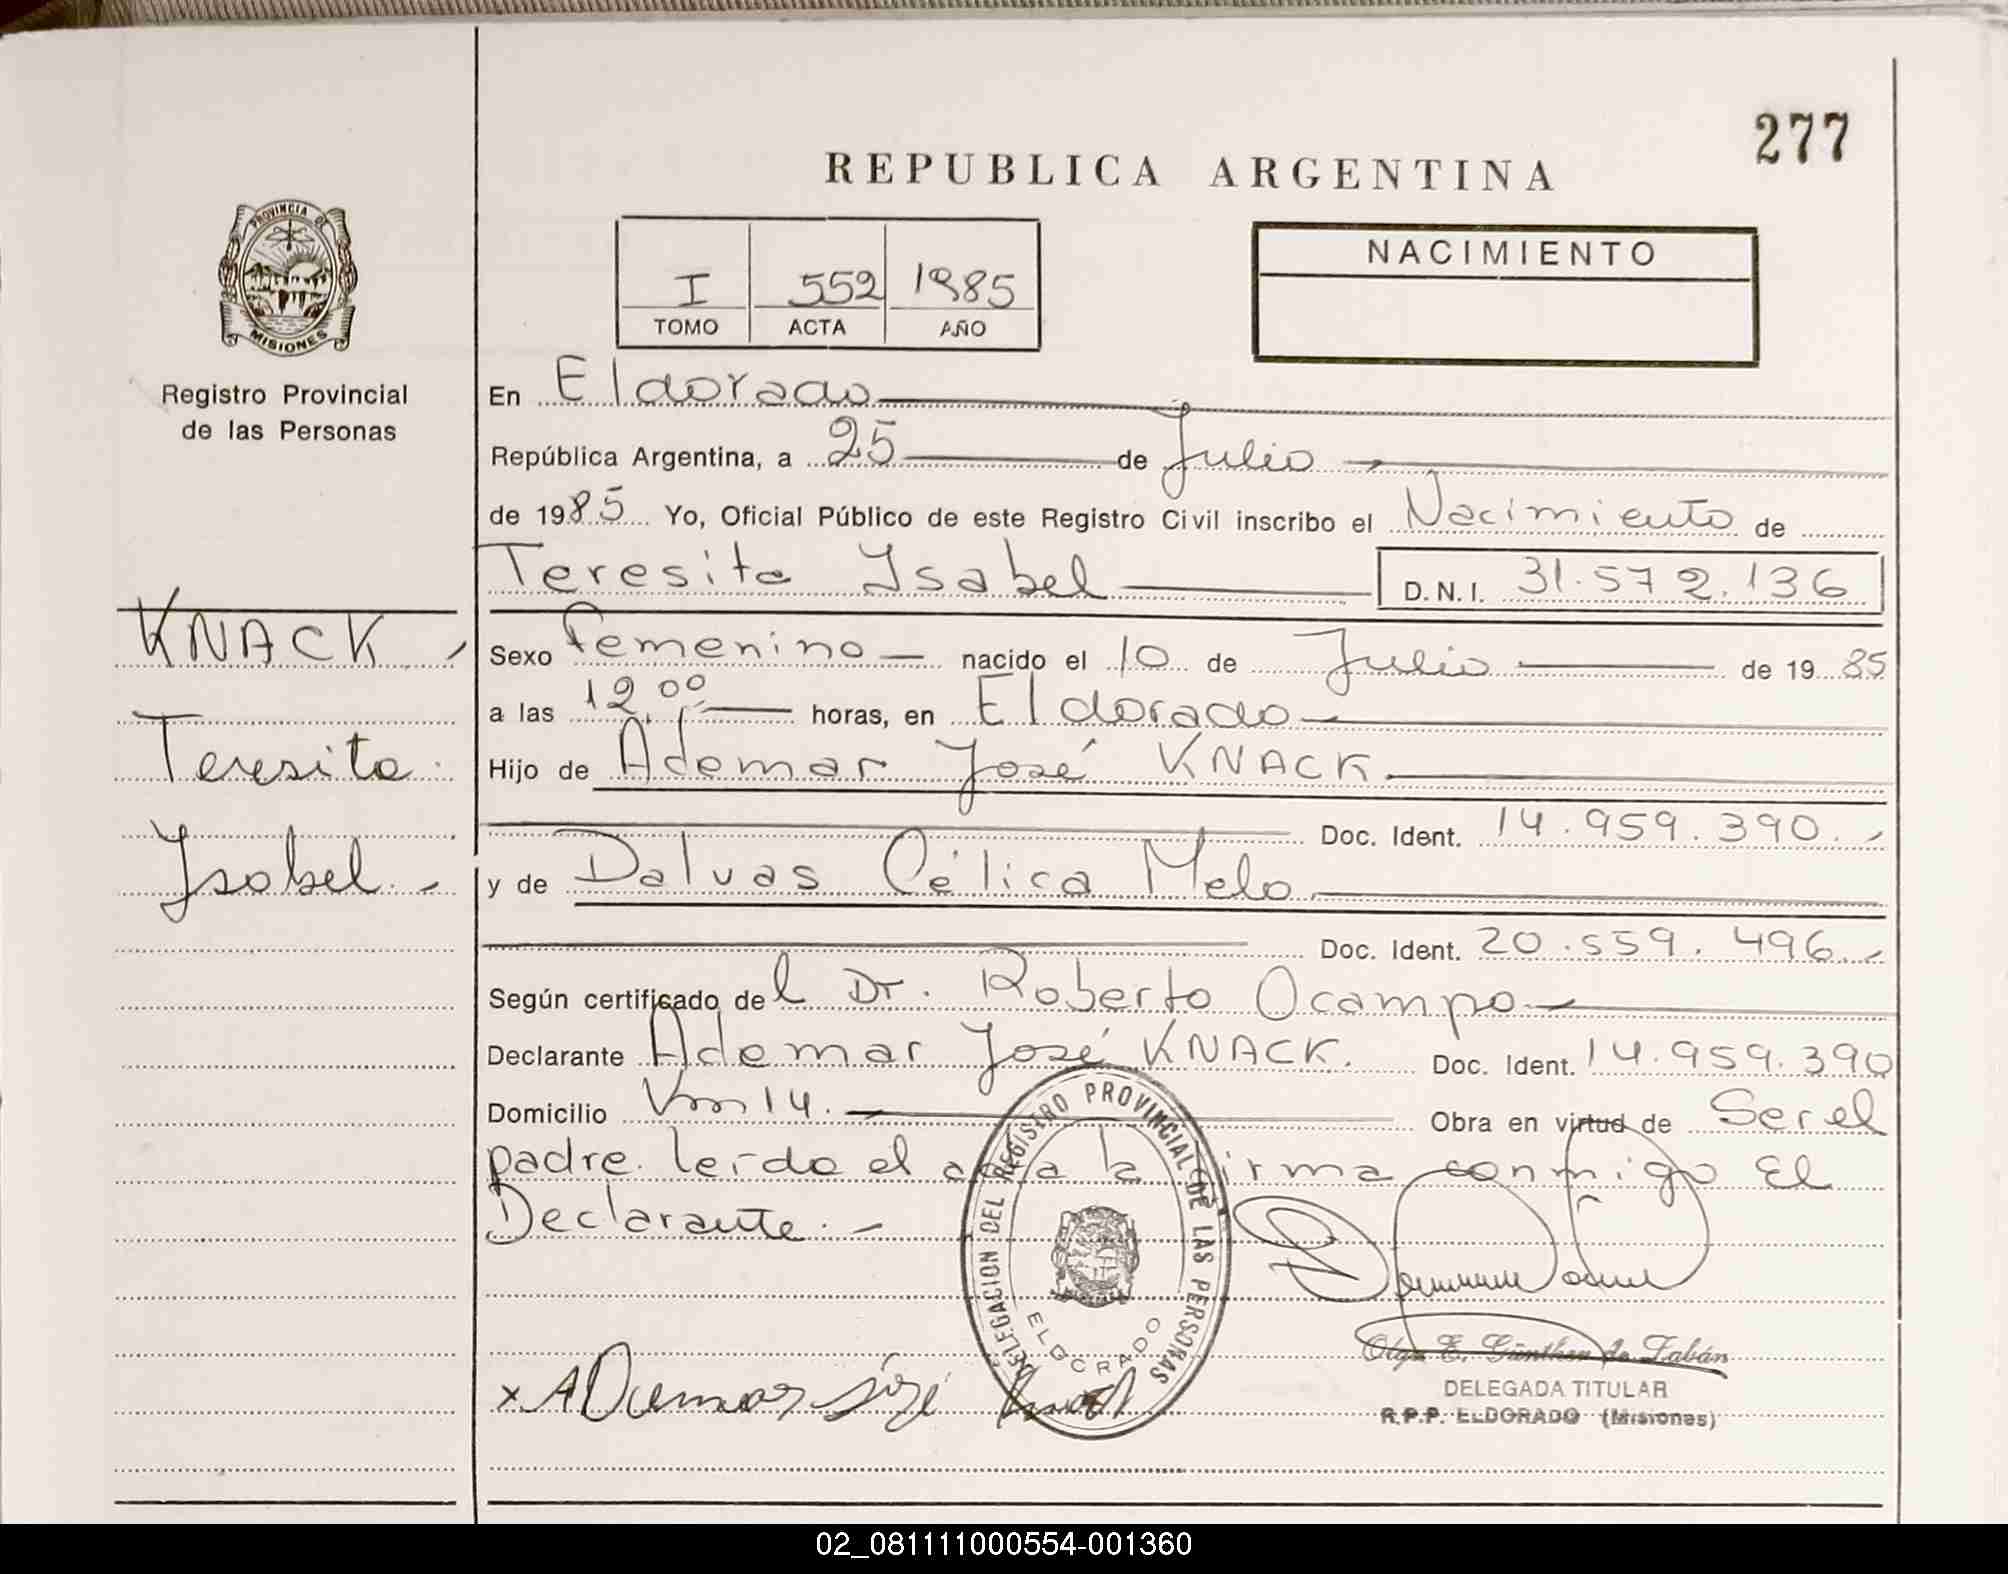 277
REPUBLICA ARGENTINA
PROVINCIA DE
MISIONES
Registro Provincial
de las Personas
I 552 1985
TOMO ACTA AÑO
NACIMIENTO
En Eldorado
República Argentina, a 25 de Julio
de 1985 Yo, Oficial Público de este Registro Civil inscribo el Nacimiento de
Teresita Ysabel D.N.I. 31.572.136
KNACK
Teresita
Ysabel.
Sexo Femenino nacido el 10 de Julio de 1985
a las 12,00 horas, en Eldorado
Hijo de Ademar José KNACK
Doc. Ident. 14.959.390.
y de Dalvas Célica Melo
Doc. Ident. 20.559.496.
Según certificado del Dr. Roberto Ocampo
Declarante Ademar José KNACK. Doc. Ident. 14.959.390
Domicilio Km 14. Obra en virtud de Ser el
padre. leída el acta la firma conmigo El
Declarante.
DELEGACION DEL REGISTRO PROVINCIAL DE LAS PERSONAS
ELDORADO
x Ademar José
Olga E. Günther de Fabán
DELEGADA TITULAR
R.P.P. ELDORADO (Misiones)
02_081111000554-001360